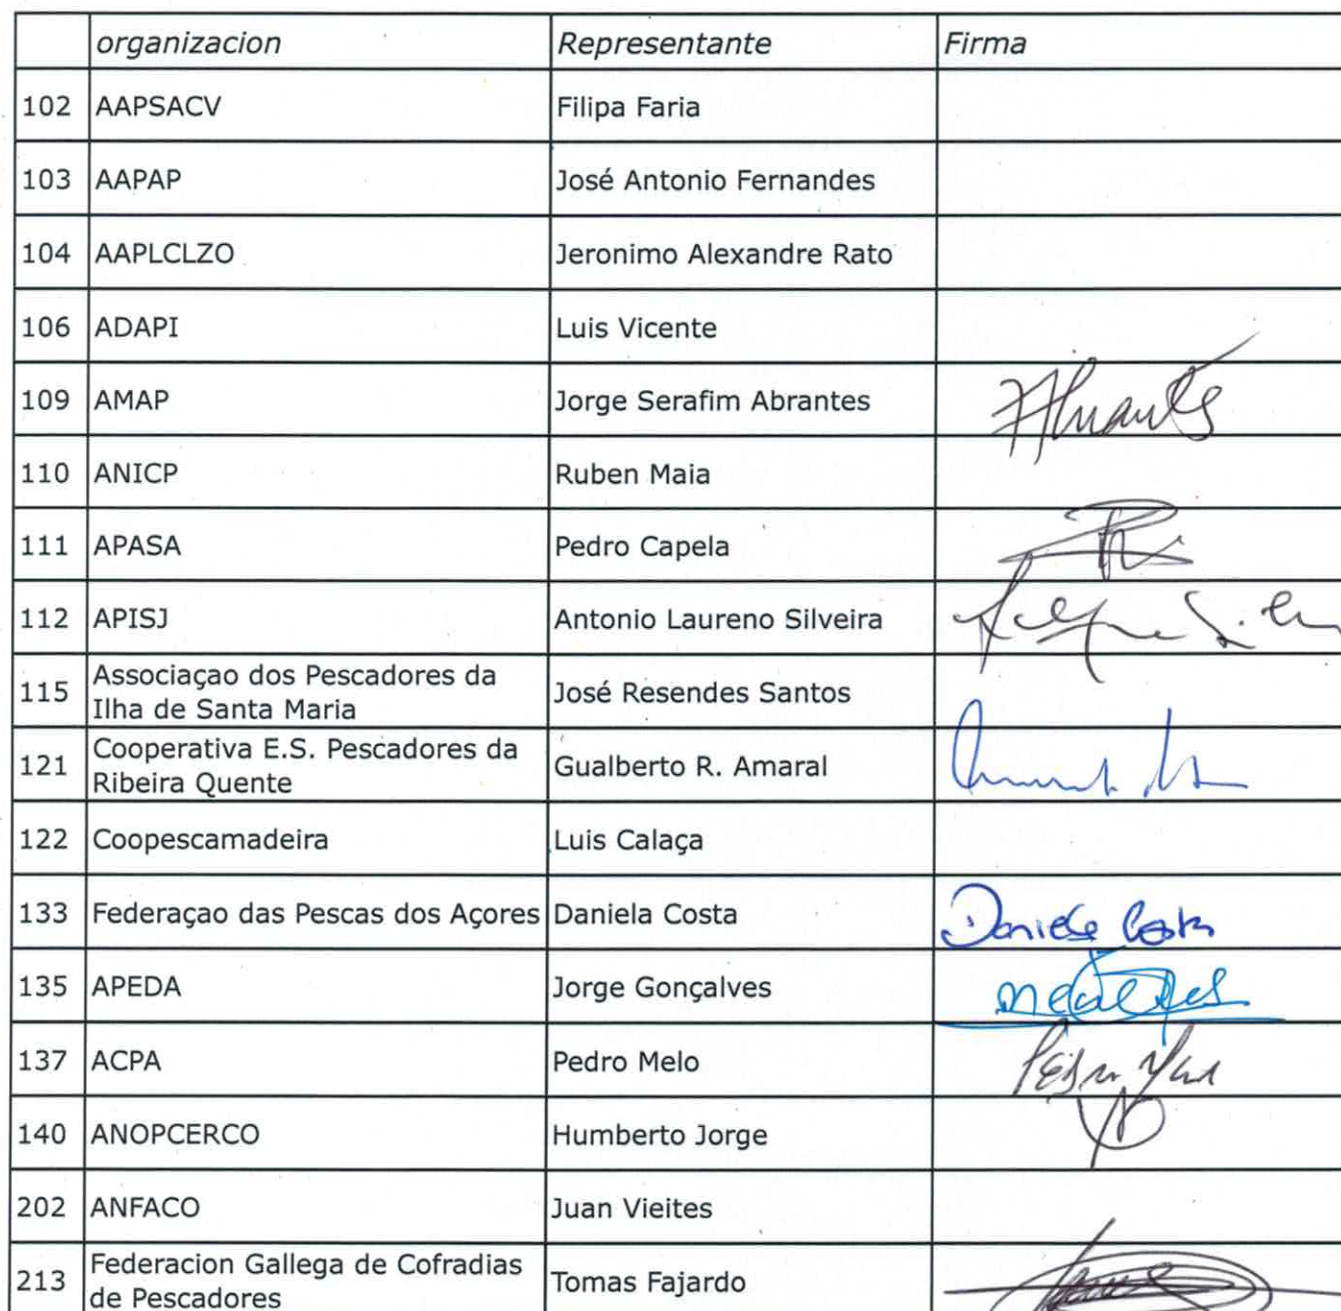 organizacion Representante Firma
102 AAPSACV Filipa Faria
103 AAPAP José Antonio Fernandes
104 AAPLCLZO Jeronimo Alexandre Rato
106 ADAPI Luis Vicente
109 AMAP Jorge Serafim Abrantes
110 ANICP Ruben Maia
111 APASA Pedro Capela
112 APISJ Antonio Laureno Silveira
115 Associaçao dos Pescadores da
Ilha de Santa Maria José Resendes Santos
121 Cooperativa E.S. Pescadores da
Ribeira Quente Gualberto R. Amaral
122 Coopescamadeira Luis Calaça
133 Federaçao das Pescas dos Açores Daniela Costa Daniela Costa
135 APEDA Jorge Gonçalves
137 ACPA Pedro Melo
140 ANOPCERCO Humberto Jorge
202 ANFACO Juan Vieites
213 Federacion Gallega de Cofradias
de Pescadores Tomas Fajardo